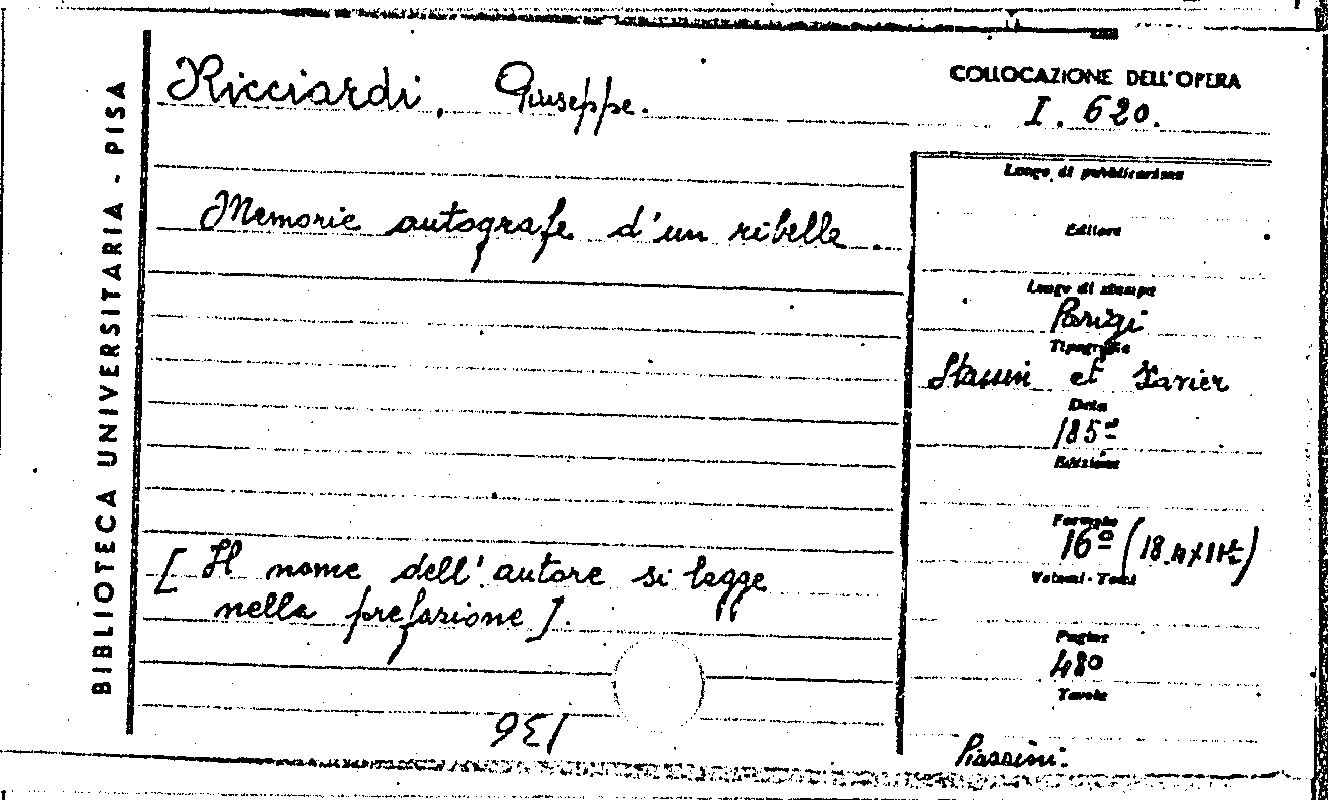 BIBLIOTECA UNIVERSITARIA - PISA
Ricciardi, Giuseppe.
COLLOCAZIONE DELL'OPERA
I. 620.
Memorie autografe d'un ribelle.
Luogo di pubblicazione
Editore
Luogo di stampa
Parigi
Tipografia
et Xavier
Data
Edizione
Formato
16º
Volumi - Tomi
[Il nome dell'autore si legge
nella prefazione].
Pagine
480
Tavole
136